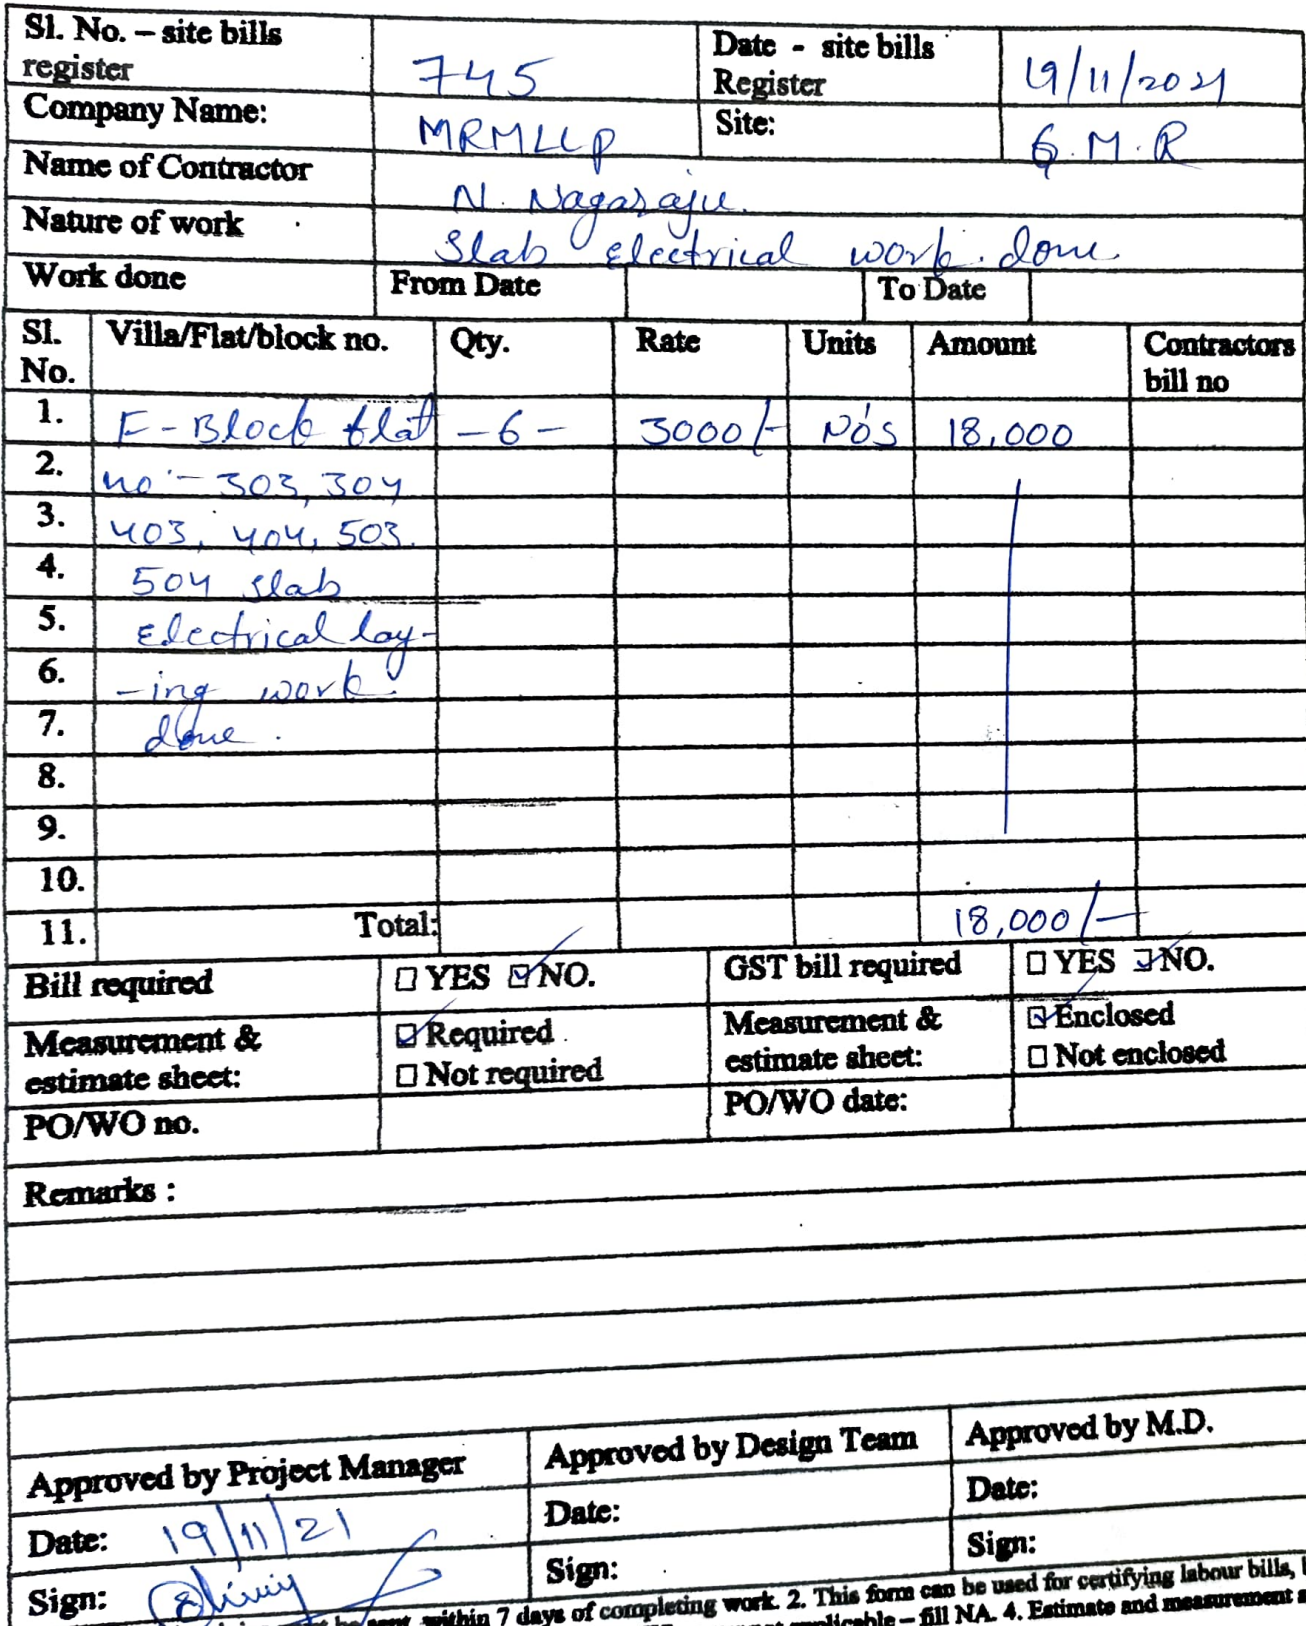 Sl. No. – site bills register 745 Date - site bills Register 19/11/2021
Company Name: MRMLLP Site: G.M.R
Name of Contractor N. Nagaraju.
Nature of work Slab electrical work done
Work done From Date To Date
Sl. No. Villa/Flat/block no. Qty. Rate Units Amount Contractors bill no
1. F-Block flat -6- 3000/- Nos 18,000
2. no:- 303, 304
3. 403, 404, 503.
4. 504 slab
5. Electrical lay-
6. -ing work
7. done.
8.
9.
10.
11. Total: 18,000/-
Bill required ☐ YES ☑ NO. GST bill required ☐ YES ☑ NO.
Measurement & estimate sheet: ☑ Required ☐ Not required Measurement & estimate sheet: ☑ Enclosed ☐ Not enclosed
PO/WO no. PO/WO date:
Remarks :
Approved by Project Manager Approved by Design Team Approved by M.D.
Date: 19/11/21 Date: Date:
Sign: Sign: Sign:
within 7 days of completing work. 2. This form can be used for certifying labour bills,
applicable – fill NA. 4. Estimate and measurement